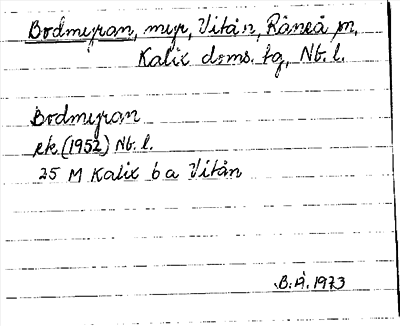 Bodmyran, myr, Vitån, Råneå sn,
Kalix doms. tg, Nb. l.
Bodmyran
ek. (1952) Nb. l.
25 M Kalix 6 a Vitån
B. Å. 1973